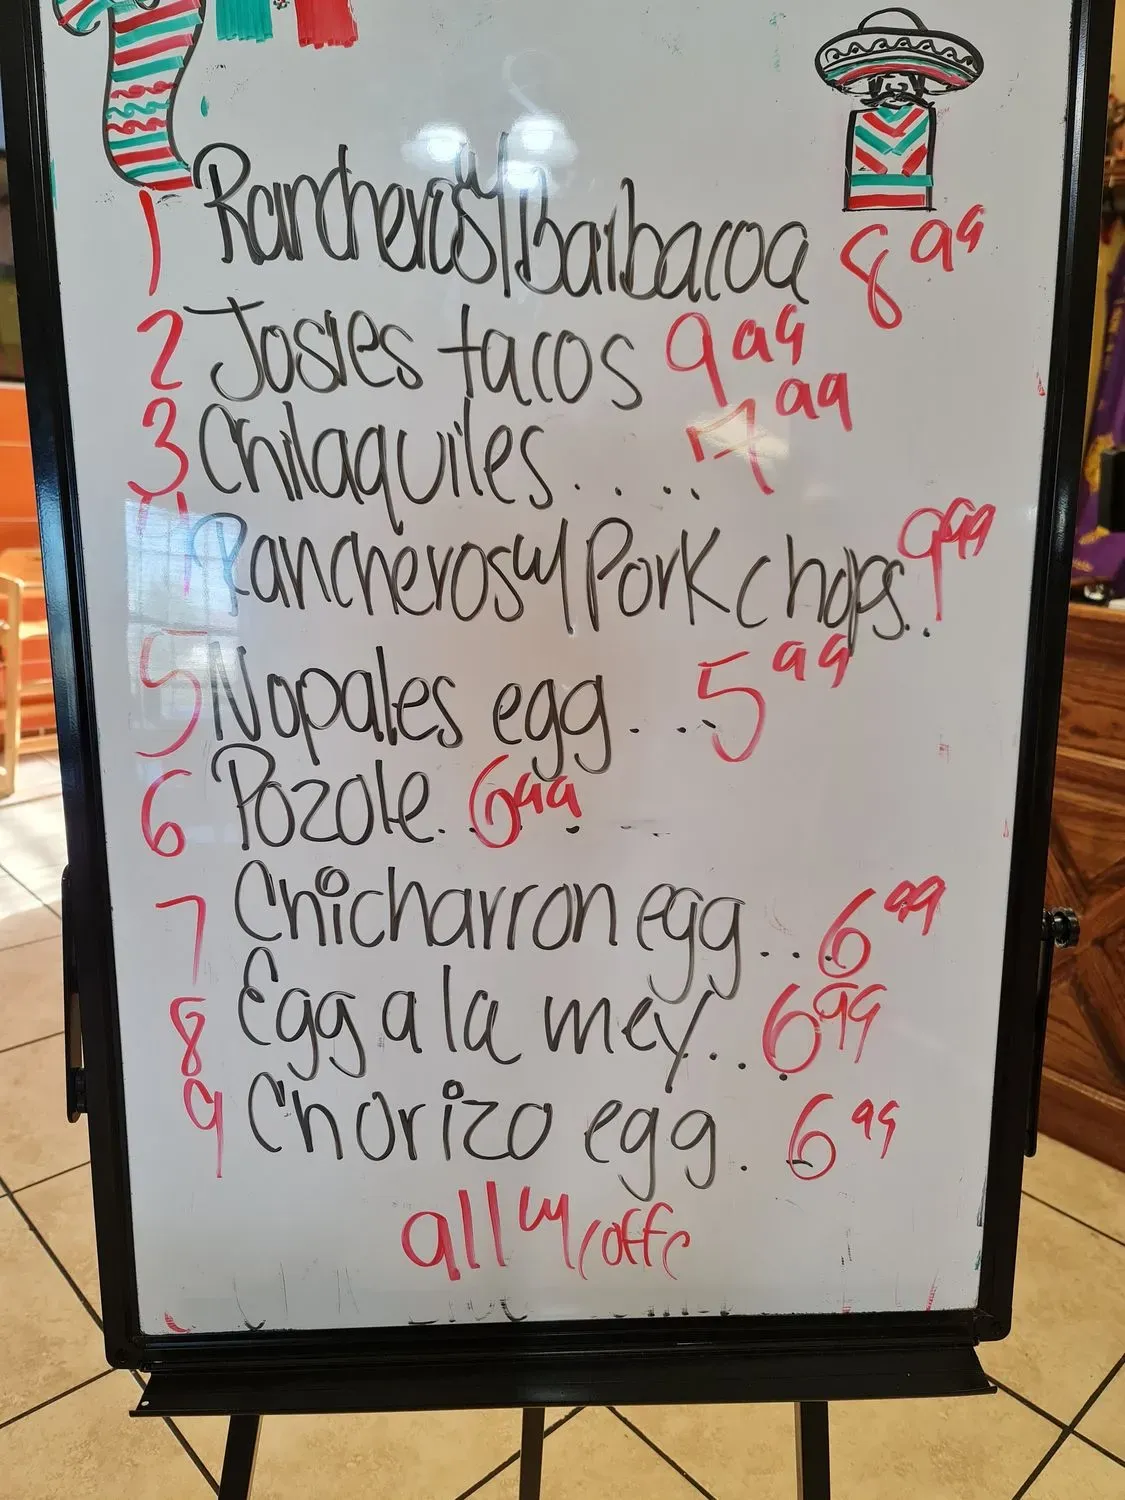 1 Rancheros w/ Barbacoa 8 99
2 Josies tacos 9 99
3 Chilaquiles..... 7 99
4 Rancheros w/ Pork chops.. 9 99
5 Nopales egg.... 5 99
6 Pozole.. 6 99
7 Chicharron egg... 6 99
8 Egg a la mex... 6 99
9 Chorizo egg.. 6 99
all w/ coffe